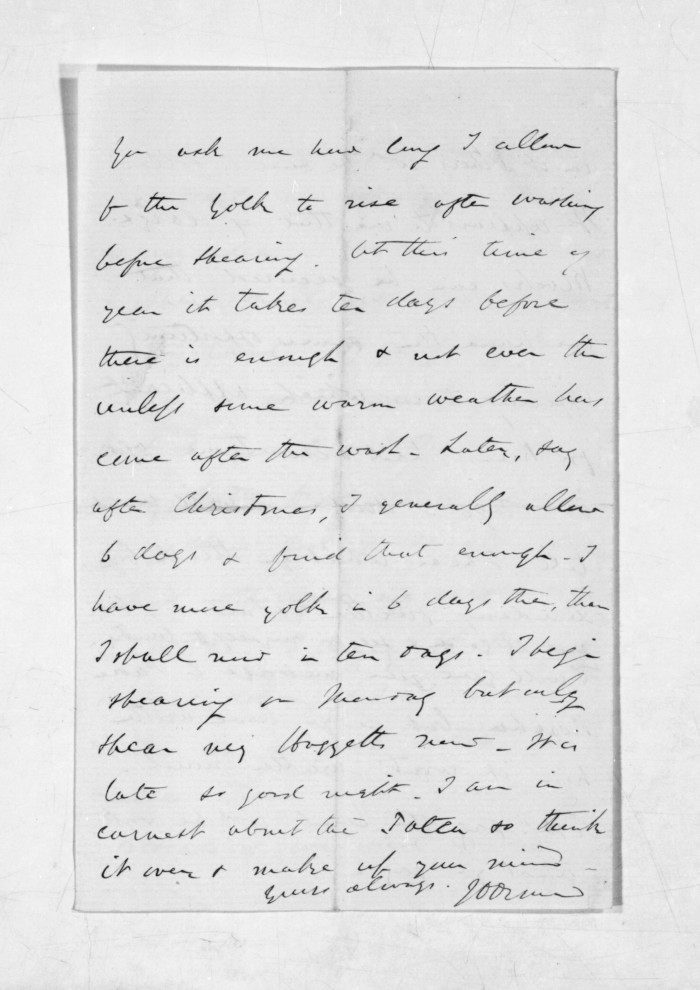 You ask me how long I allow
for the Yolk to rise after washing
before shearing. At this time of
year it takes ten days before
there is enough & not even then
unless some warm weather has
come after the wash - Later, say
after Christmas, I generally allow
6 days & find that enough - I
have more yolk in 6 days then, than
I shall now in ten days. I begin
shearing on Monday but only
shear my Hoggetts now - It is
late so good night - I am in
earnest about the so think
it over & make up your mind -
yours always.